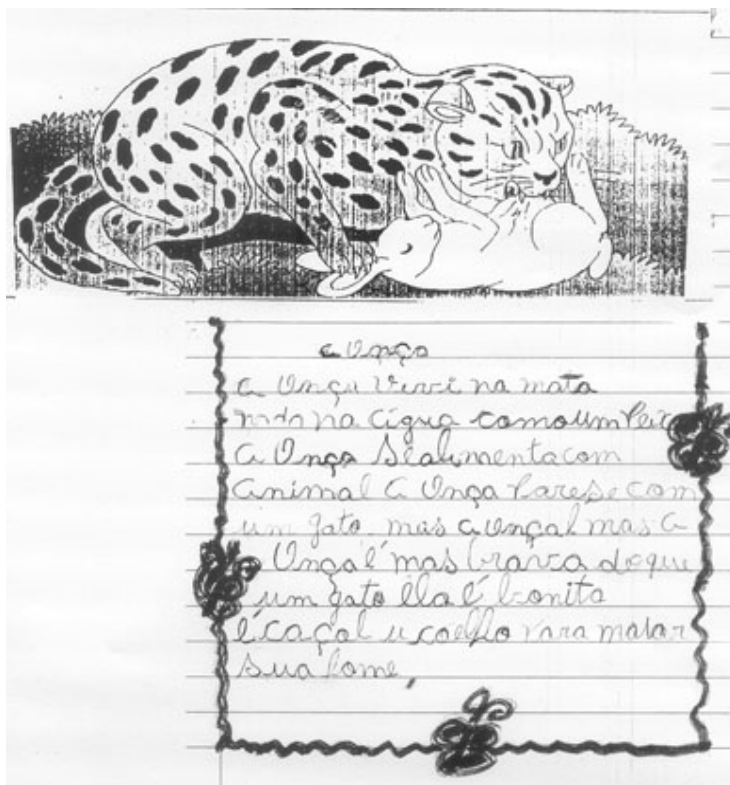 a Onça
a Onça vivi na mata
nada na água como um Peix
a Onça sealimentacom
animal a Onça Parese com
um gato. mas a onçal mas a
Onça é mas brava doque
um gato Ela é bonita
é caçal u coelho Para matar
sua fome,